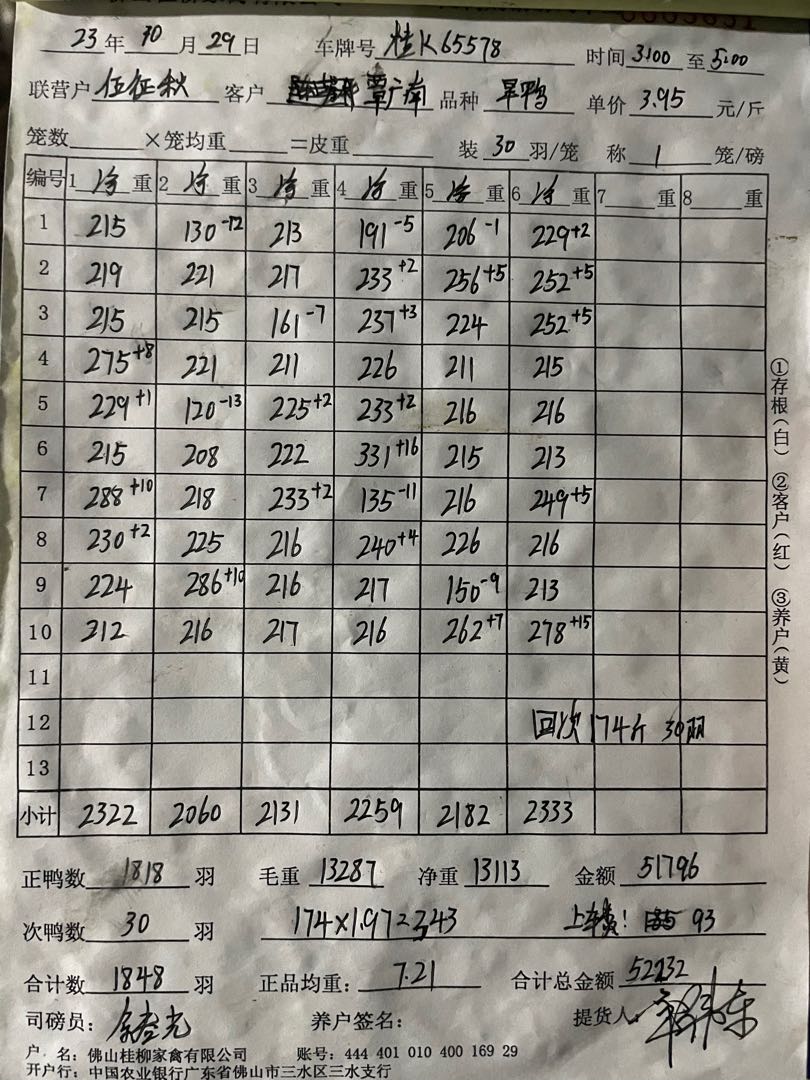 23年10月29日 车牌号 桂K65578 时间3:00至5:00
联营户 伍征秋 客户 覃广南 品种 旱鸭 单价 3.95 元/斤
笼数 ×笼均重 =皮重 装 30 羽/笼 称 1 笼/磅
编号 1 净 重 2 净 重 3 净 重 4 净 重 5 净 重 6 净 重 7 重 8 重
1 215 130-12 213 191-5 206-1 229+2
2 219 221 217 233+2 256+5 252+5
3 215 215 161-7 237+3 224 252+5
4 275+8 221 211 226 211 215
5 229+1 120-13 225+2 233+2 216 216
6 215 208 222 331+16 215 213
7 288+10 218 233+2 135-11 216 249+5
8 230+2 225 216 240+4 226 216
9 224 286+10 216 217 150-9 213
10 212 216 217 216 262+7 278+15
11
12 回次174斤 30羽
13
小计 2322 2060 2131 2259 2182 2333
正鸭数 1818 羽 毛重 13287 净重 13113 金额 51796
次鸭数 30 羽 174×1.97=343 上车费! 93
合计数 1848 羽 正品均重: 7.21 合计总金额 52232
司磅员: 养户签名: 提货人:
户 名:佛山桂柳家禽有限公司 账号:444 401 010 400 169 29
开户行:中国农业银行广东省佛山市三水区三水支行
①存根(白) ②客户(红) ③养户(黄)